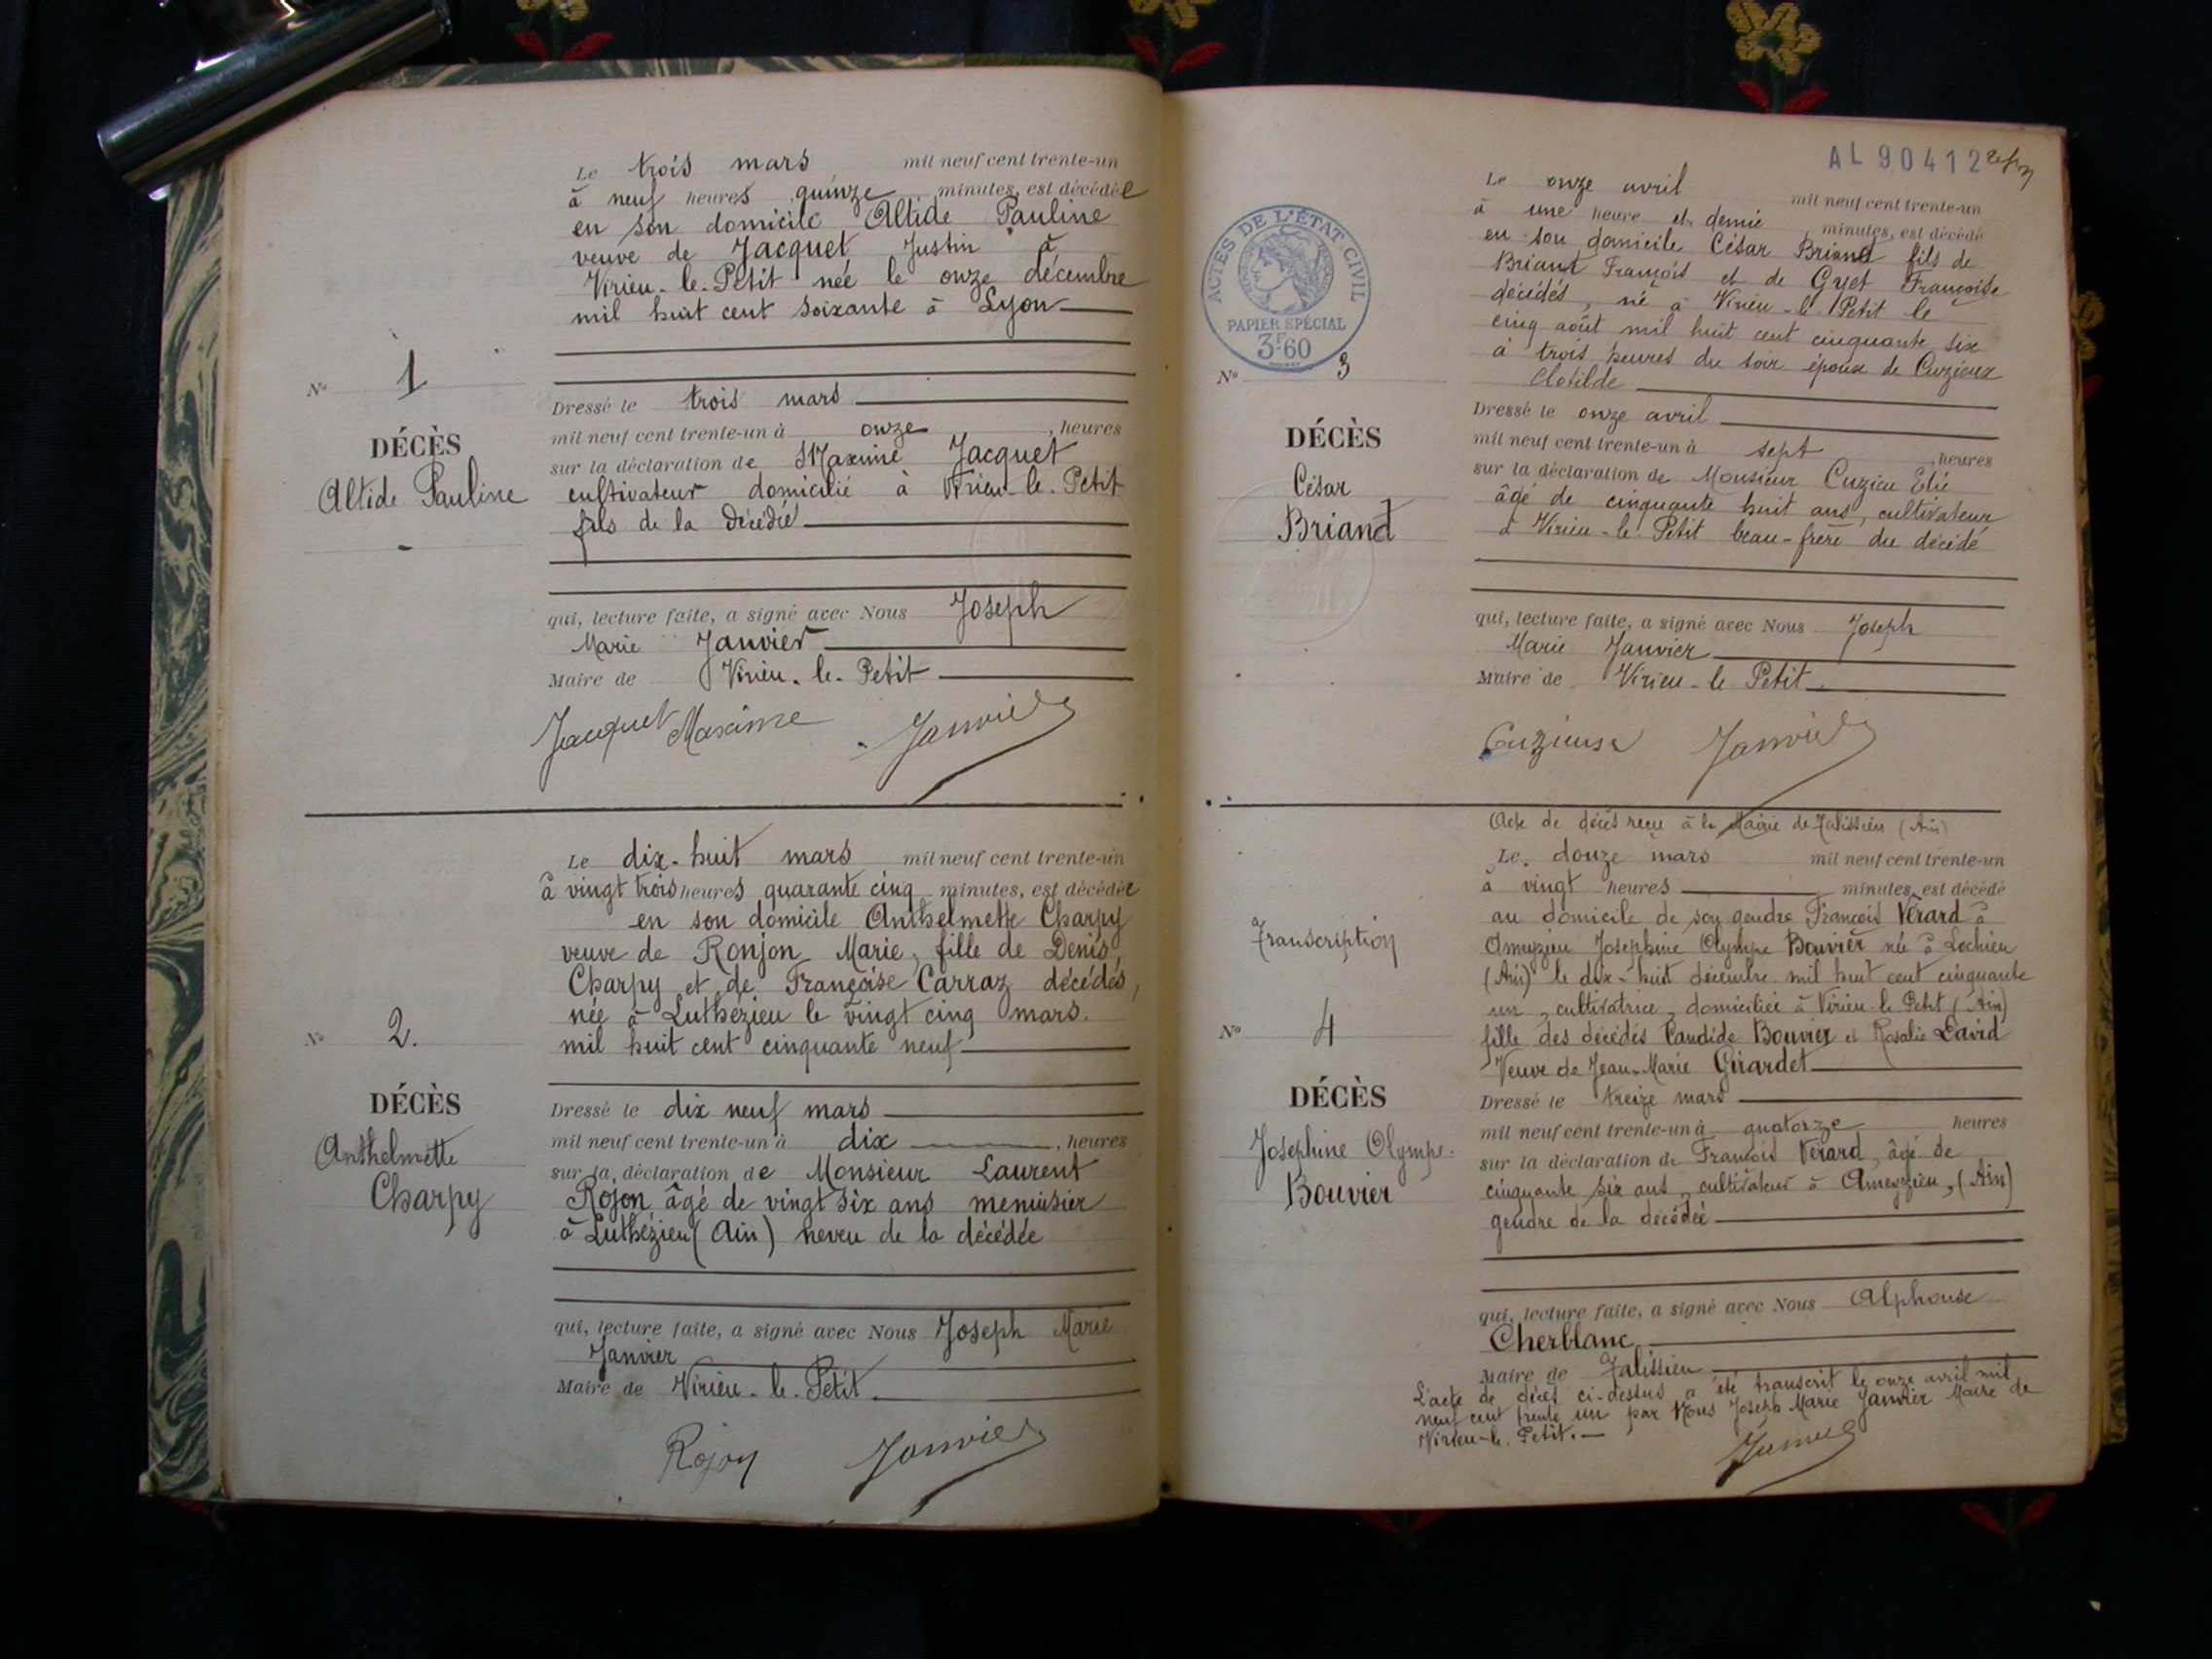 Le trois mars mil neuf cent trente-un
à neuf heures quinze minutes, est décédée
en son domicile Altide Pauline
veuve de Jacquet Justin à
Virieu-le-Petit née le onze décembre
mil huit cent soixante à Lyon
N° 1
DÉCÈS
Altide Pauline
Dressé le trois mars
mil neuf cent trente-un à onze, heures
sur la déclaration de Maxime Jacquet
cultivateur domicilié à Virieu-le-Petit
fils de la décédée
qui, lecture faite, a signé avec Nous Joseph
Marie Janvier
Maire de Virieu-le-Petit
Jacquet Maxime Janvier
Le dix-huit mars mil neuf cent trente-un
à vingt trois heures quarante cinq minutes, est décédée
en son domicile Anthelmette Charpy
veuve de Ronjon Marie, fille de Denis
Charpy et de Françoise Carraz décédés,
née à Luthézieu le vingt cinq mars
mil huit cent cinquante neuf
N° 2.
DÉCÈS
Anthelmette
Charpy
Dressé le dix neuf mars
mil neuf cent trente-un à dix, heures
sur la déclaration de Monsieur Laurent
Rojon âgé de vingt six ans menuisier
à Luthézieu (Ain) neveu de la décédée
qui, lecture faite, a signé avec Nous Joseph Marie
Janvier
Maire de Virieu-le-Petit
Rojon Janvier
AL 90412
ACTES DE L'ÉTAT CIVIL
PAPIER SPÉCIAL
3F60
Le onze avril mil neuf cent trente-un
à une heure et demie minutes, est décédé
en son domicile César Briand fils de
Briand François et de Gyet Françoise
décédés, né à Virieu-le-Petit le
cinq août mil huit cent cinquante six
à trois heures du soir époux de Cuzieux
Clotilde
N° 3
DÉCÈS
César
Briand
Dressé le onze avril
mil neuf cent trente-un à sept, heures
sur la déclaration de Monsieur Cuzieu Elie
âgé de cinquante huit ans, cultivateur
à Virieu-le-Petit beau-frère du décédé
qui, lecture faite, a signé avec Nous Joseph
Marie Janvier
Maire de Virieu-le-Petit
Cuzieux Janvier
Acte de décès reçu à la Mairie de Talissieu (Ain)
Le douze mars mil neuf cent trente-un
à vingt heures minutes, est décédé
au domicile de son gendre François Vérard à
Ameyzieu Josephine Olympe Bouvier née à Lochieu
(Ain) le dix-huit décembre mil huit cent cinquante
un, cultivatrice, domiciliée à Virieu-le-Petit (Ain)
fille des décédés Candide Bouvier et Rosalie David
Veuve de Jean-Marie Girardet
Transcription
N° 4
DÉCÈS
Josephine Olympe
Bouvier
Dressé le treize mars
mil neuf cent trente-un à quatorze heures
sur la déclaration de François Vérard, âgé de
cinquante six ans, cultivateur à Ameyzieu, (Ain)
gendre de la décédée
qui, lecture faite, a signé avec Nous Alphonse
Cherblanc
Maire de Talissieu
L'acte de décès ci-dessus a été transcrit le onze avril mil
neuf cent trente un par Nous Joseph Marie Janvier Maire de
Virieu-le-Petit.
Janvier